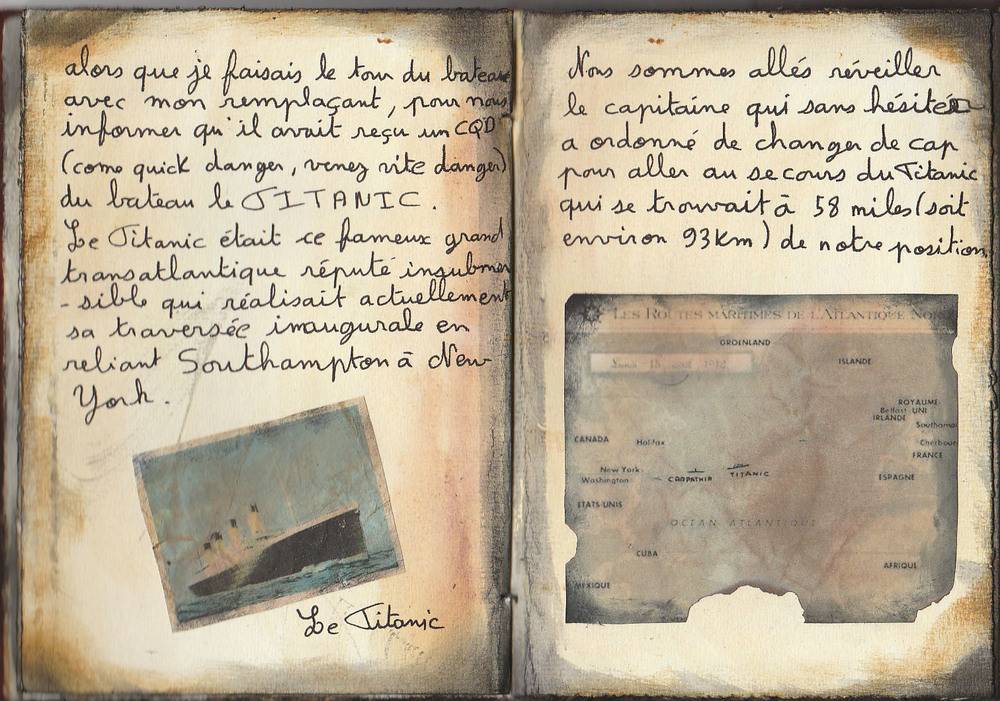 alors que je faisais le tour du bateau
avec mon remplaçant, pour nous
informer qu'il avait reçu un CQD
(come quick danger, venez vite danger)
du bateau le TITANIC.
Le Titanic était ce fameux grand
transatlantique réputé insubmer
-sible qui réalisait actuellement
sa traversée inaugurale en
reliant Southampton à New
York.
Le Titanic
Nous sommes allés réveiller
le capitaine qui sans hésiter
a ordonné de changer de cap
pour aller au secours du Titanic
qui se trouvait à 58 miles (soit
environ 93km) de notre position.
LES ROUTES MARITIMES DE L'ATLANTIQUE NOR
GROENLAND
Lundi 15 avril 1912
ISLANDE
ROYAUME-
Belfast UNI
IRLANDE
Southamp
CANADA
Halifax
Cherbour
FRANCE
New York
Washington
CARPATHIA
TITANIC
ESPAGNE
ETATS-UNIS
OCEAN ATLANTIQUE
CUBA
AFRIQUE
MEXIQUE